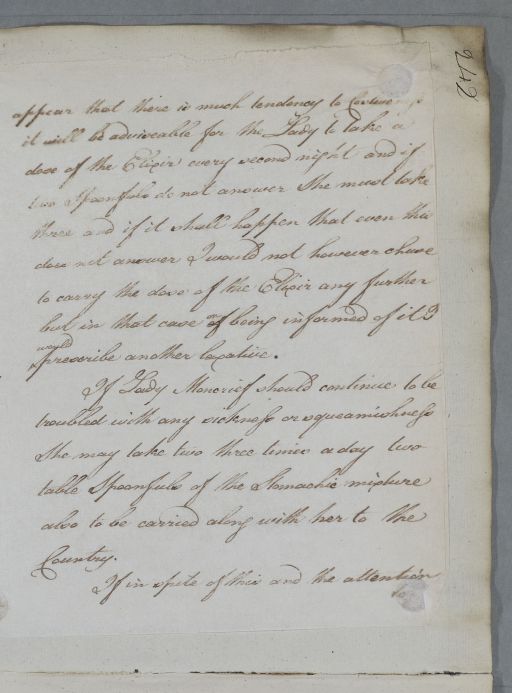 246
appear that there is much tendency to Costiveness
it will be adviceable for the Lady to take a
dose of the Elixir every second night and if
two Spoonfuls do not answer She must take
three and if it shall happen that even this
does not answer I would not however chuse
to carry the dose of the Elixir any further
but in that case on being informed of it I
would
prescribe another laxative.
If Lady Moncrief should continue to be
troubled with any sickness or squeamishness
She may take two three times a day two
table Spoonfuls of the Stomachic mixture
also to be carried along with her to the
Country.
If in spite of this and the attention
to